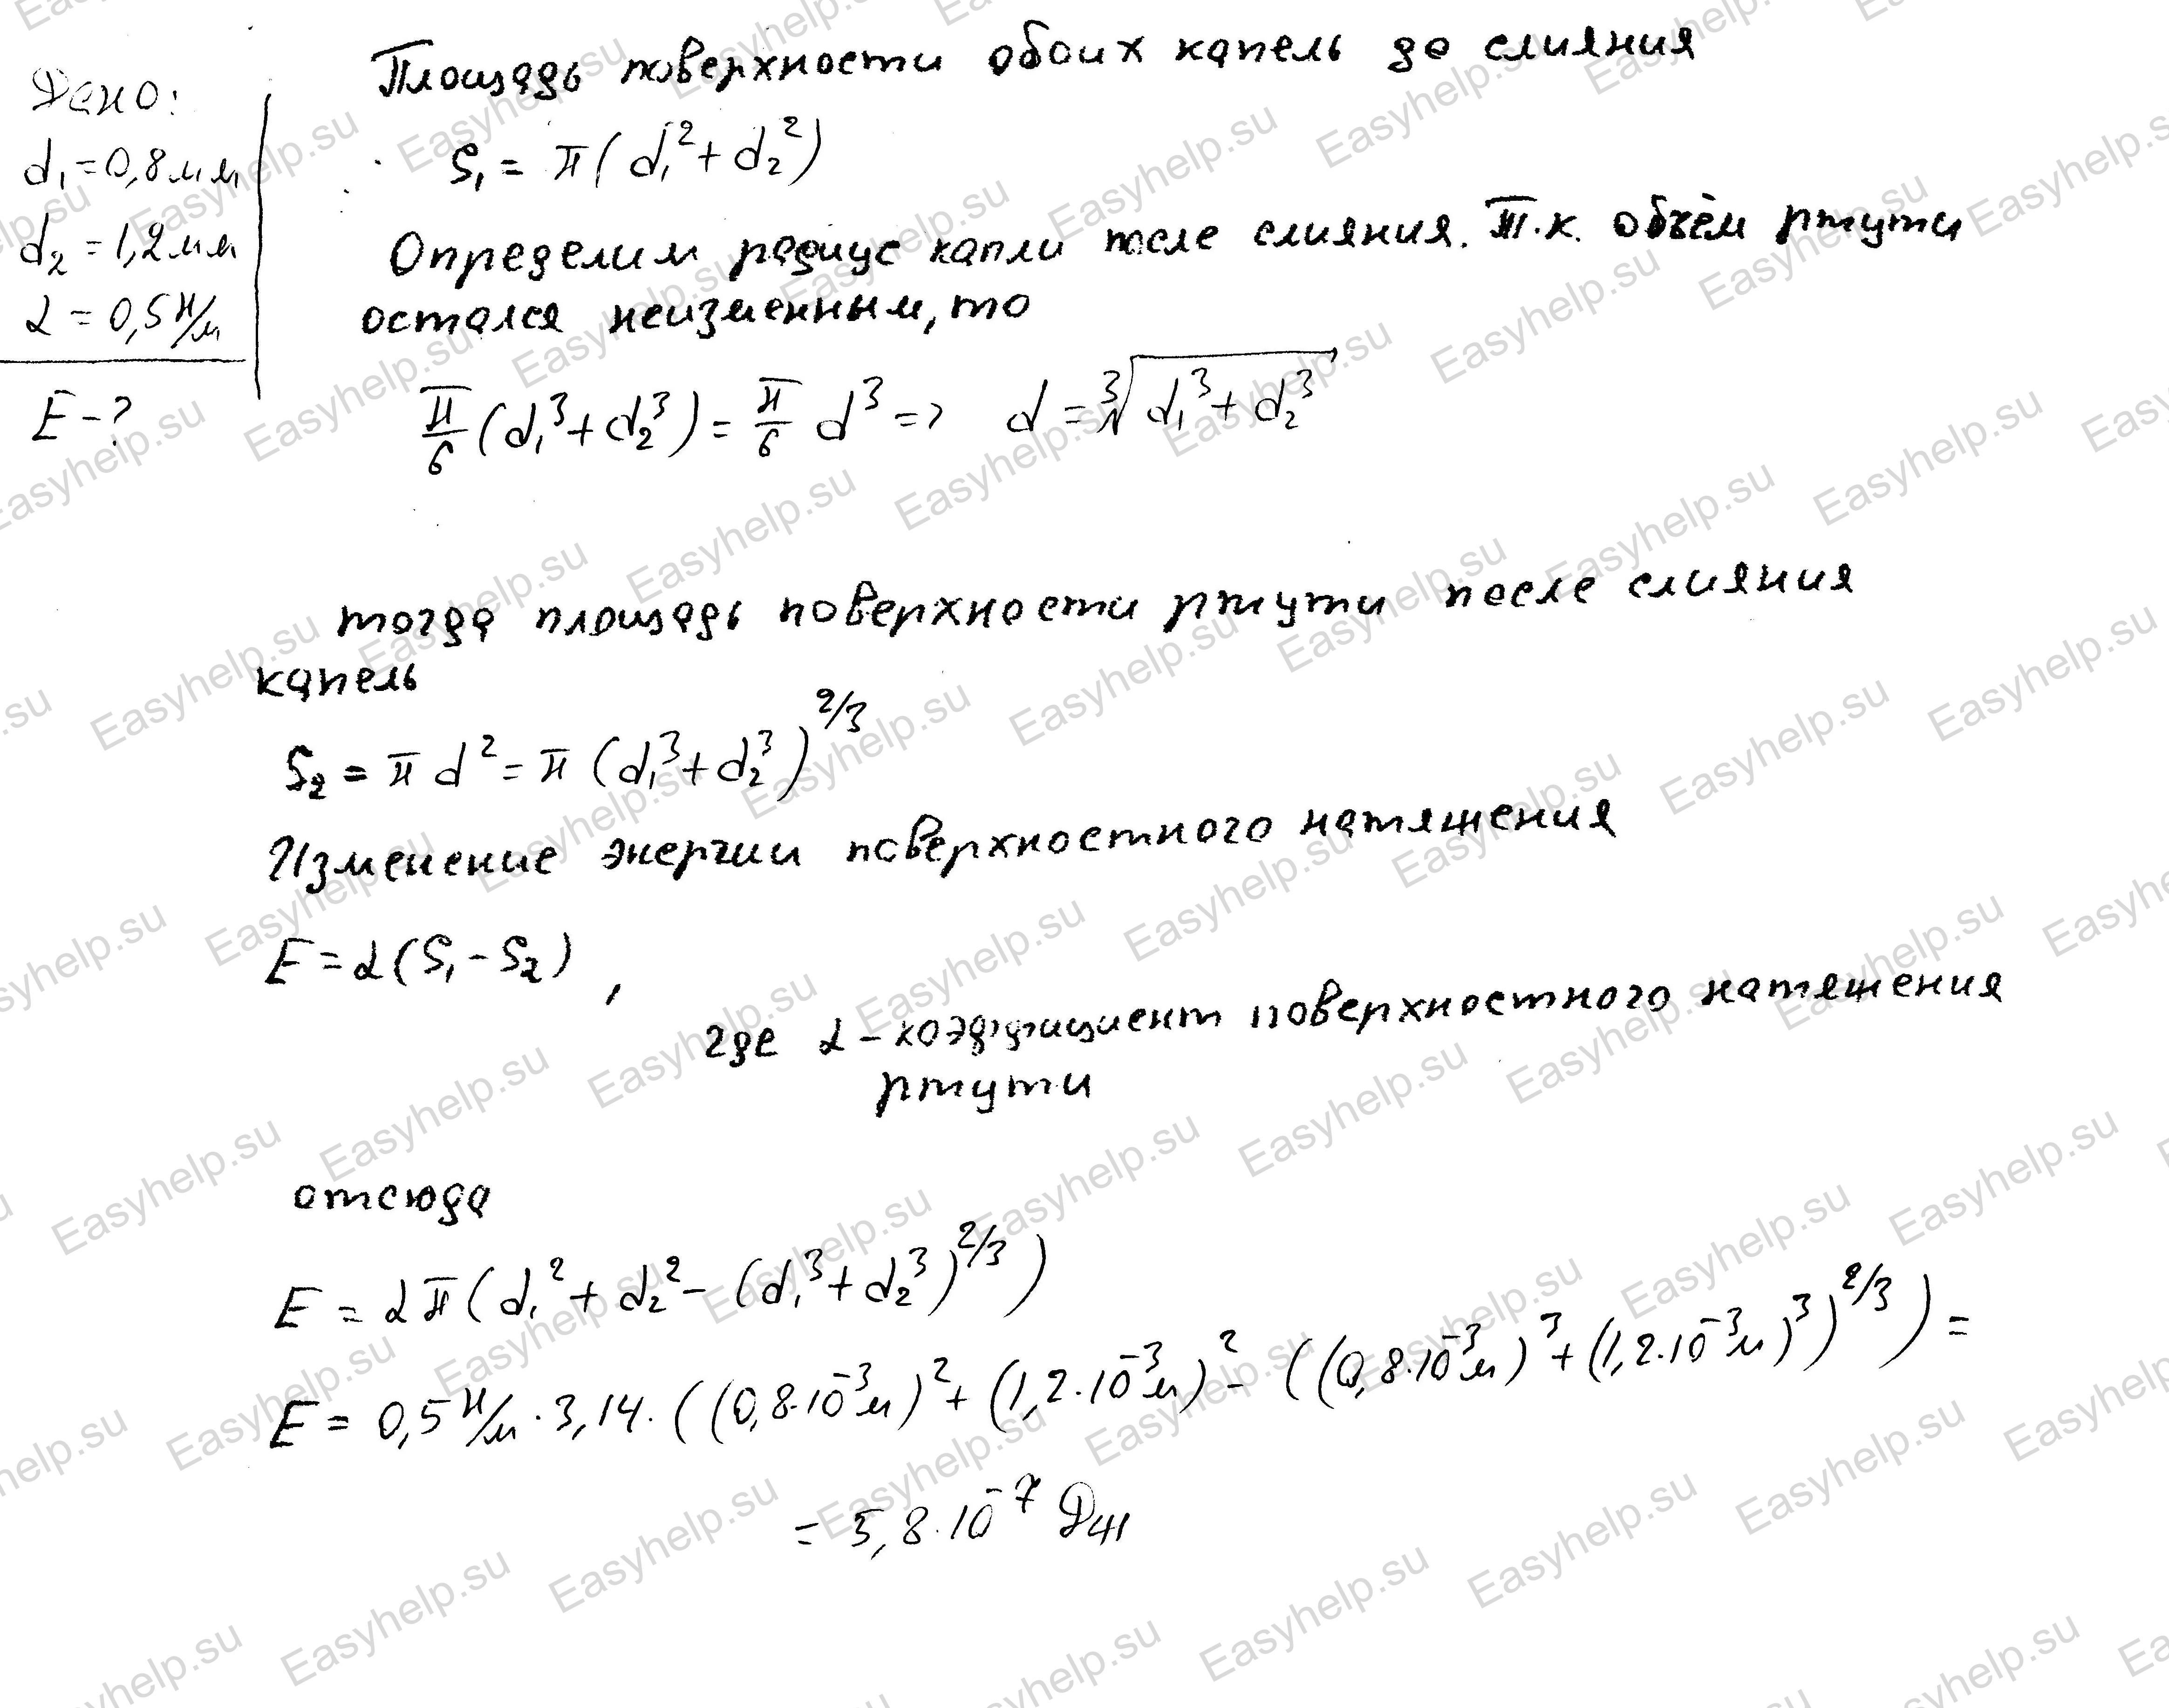 Дано:
d₁ = 0,8 мм
d₂ = 1,2 мм
α = 0,5 Н/м
E - ?
Площадь поверхности обоих капель до слияния
S₁ = π(d₁² + d₂²)
Определим радиус капли после слияния. Т.к. объём ртути
остался неизменным, то
π/6 (d₁³ + d₂³) = π/6 d³ => d = ³√(d₁³ + d₂³)
тогда площадь поверхности ртути после слияния
капель
S₂ = π d² = π (d₁³ + d₂³)^2/3
Изменение энергии поверхностного натяжения
E = α(S₁ - S₂) ,
где α - коэффициент поверхностного натяжения
ртути
отсюда
E = απ(d₁² + d₂² - (d₁³ + d₂³)^2/3)
E = 0,5 Н/м · 3,14 · ((0,8·10⁻³м)² + (1,2·10⁻³м)² - ((0,8·10⁻³м)³ + (1,2·10⁻³м)³)^2/3) =
= 5,8·10⁻⁷ Дж
Easyhelp.su